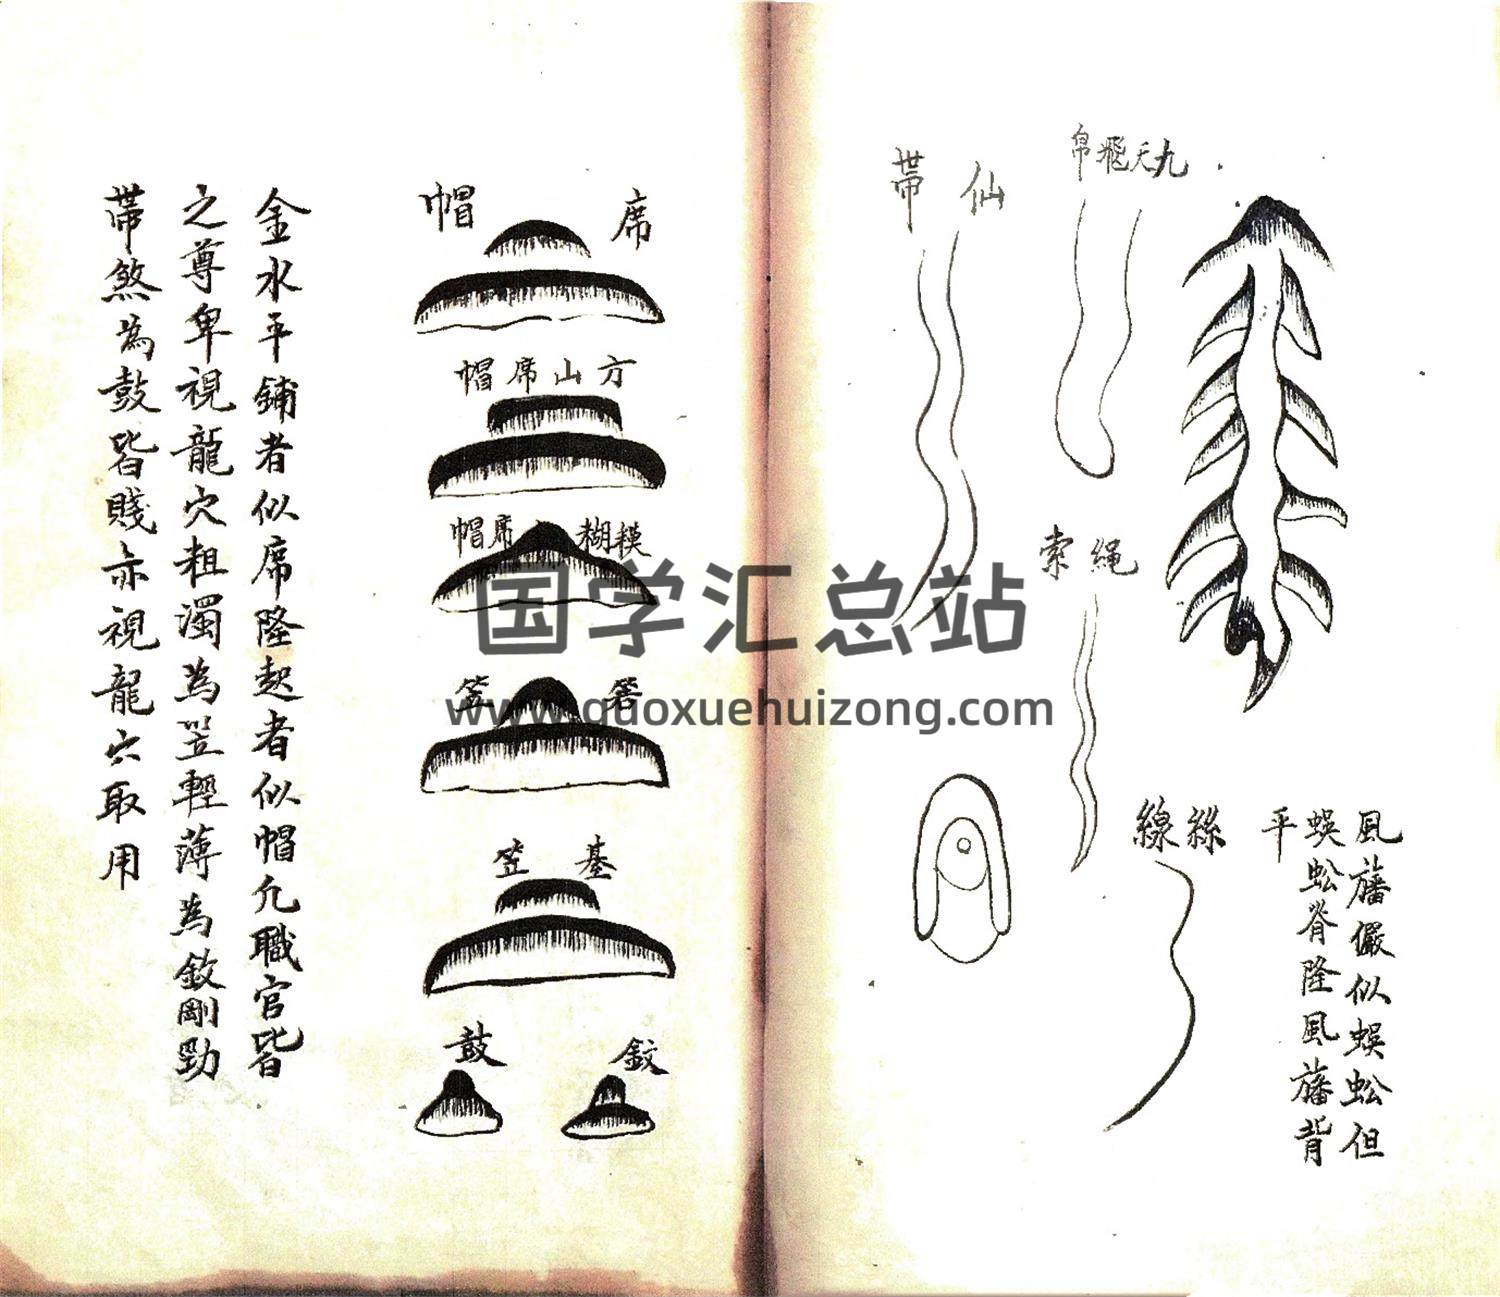 九天飛帛
仙帶
繩索
絲線
風旛儼似蜈蚣但
蜈蚣脊隆風旛背
平
席帽
方山席帽
模糊席帽
箬笠
基笠
鈸
鼓
金水平鋪者似席隆起者似帽凢職官皆
之尊卑視龍穴粗濁為笠輕薄為鈸剛勁
帶煞為鼓皆賤亦視龍穴取用
国学汇总站
www.guoxuehuizong.com